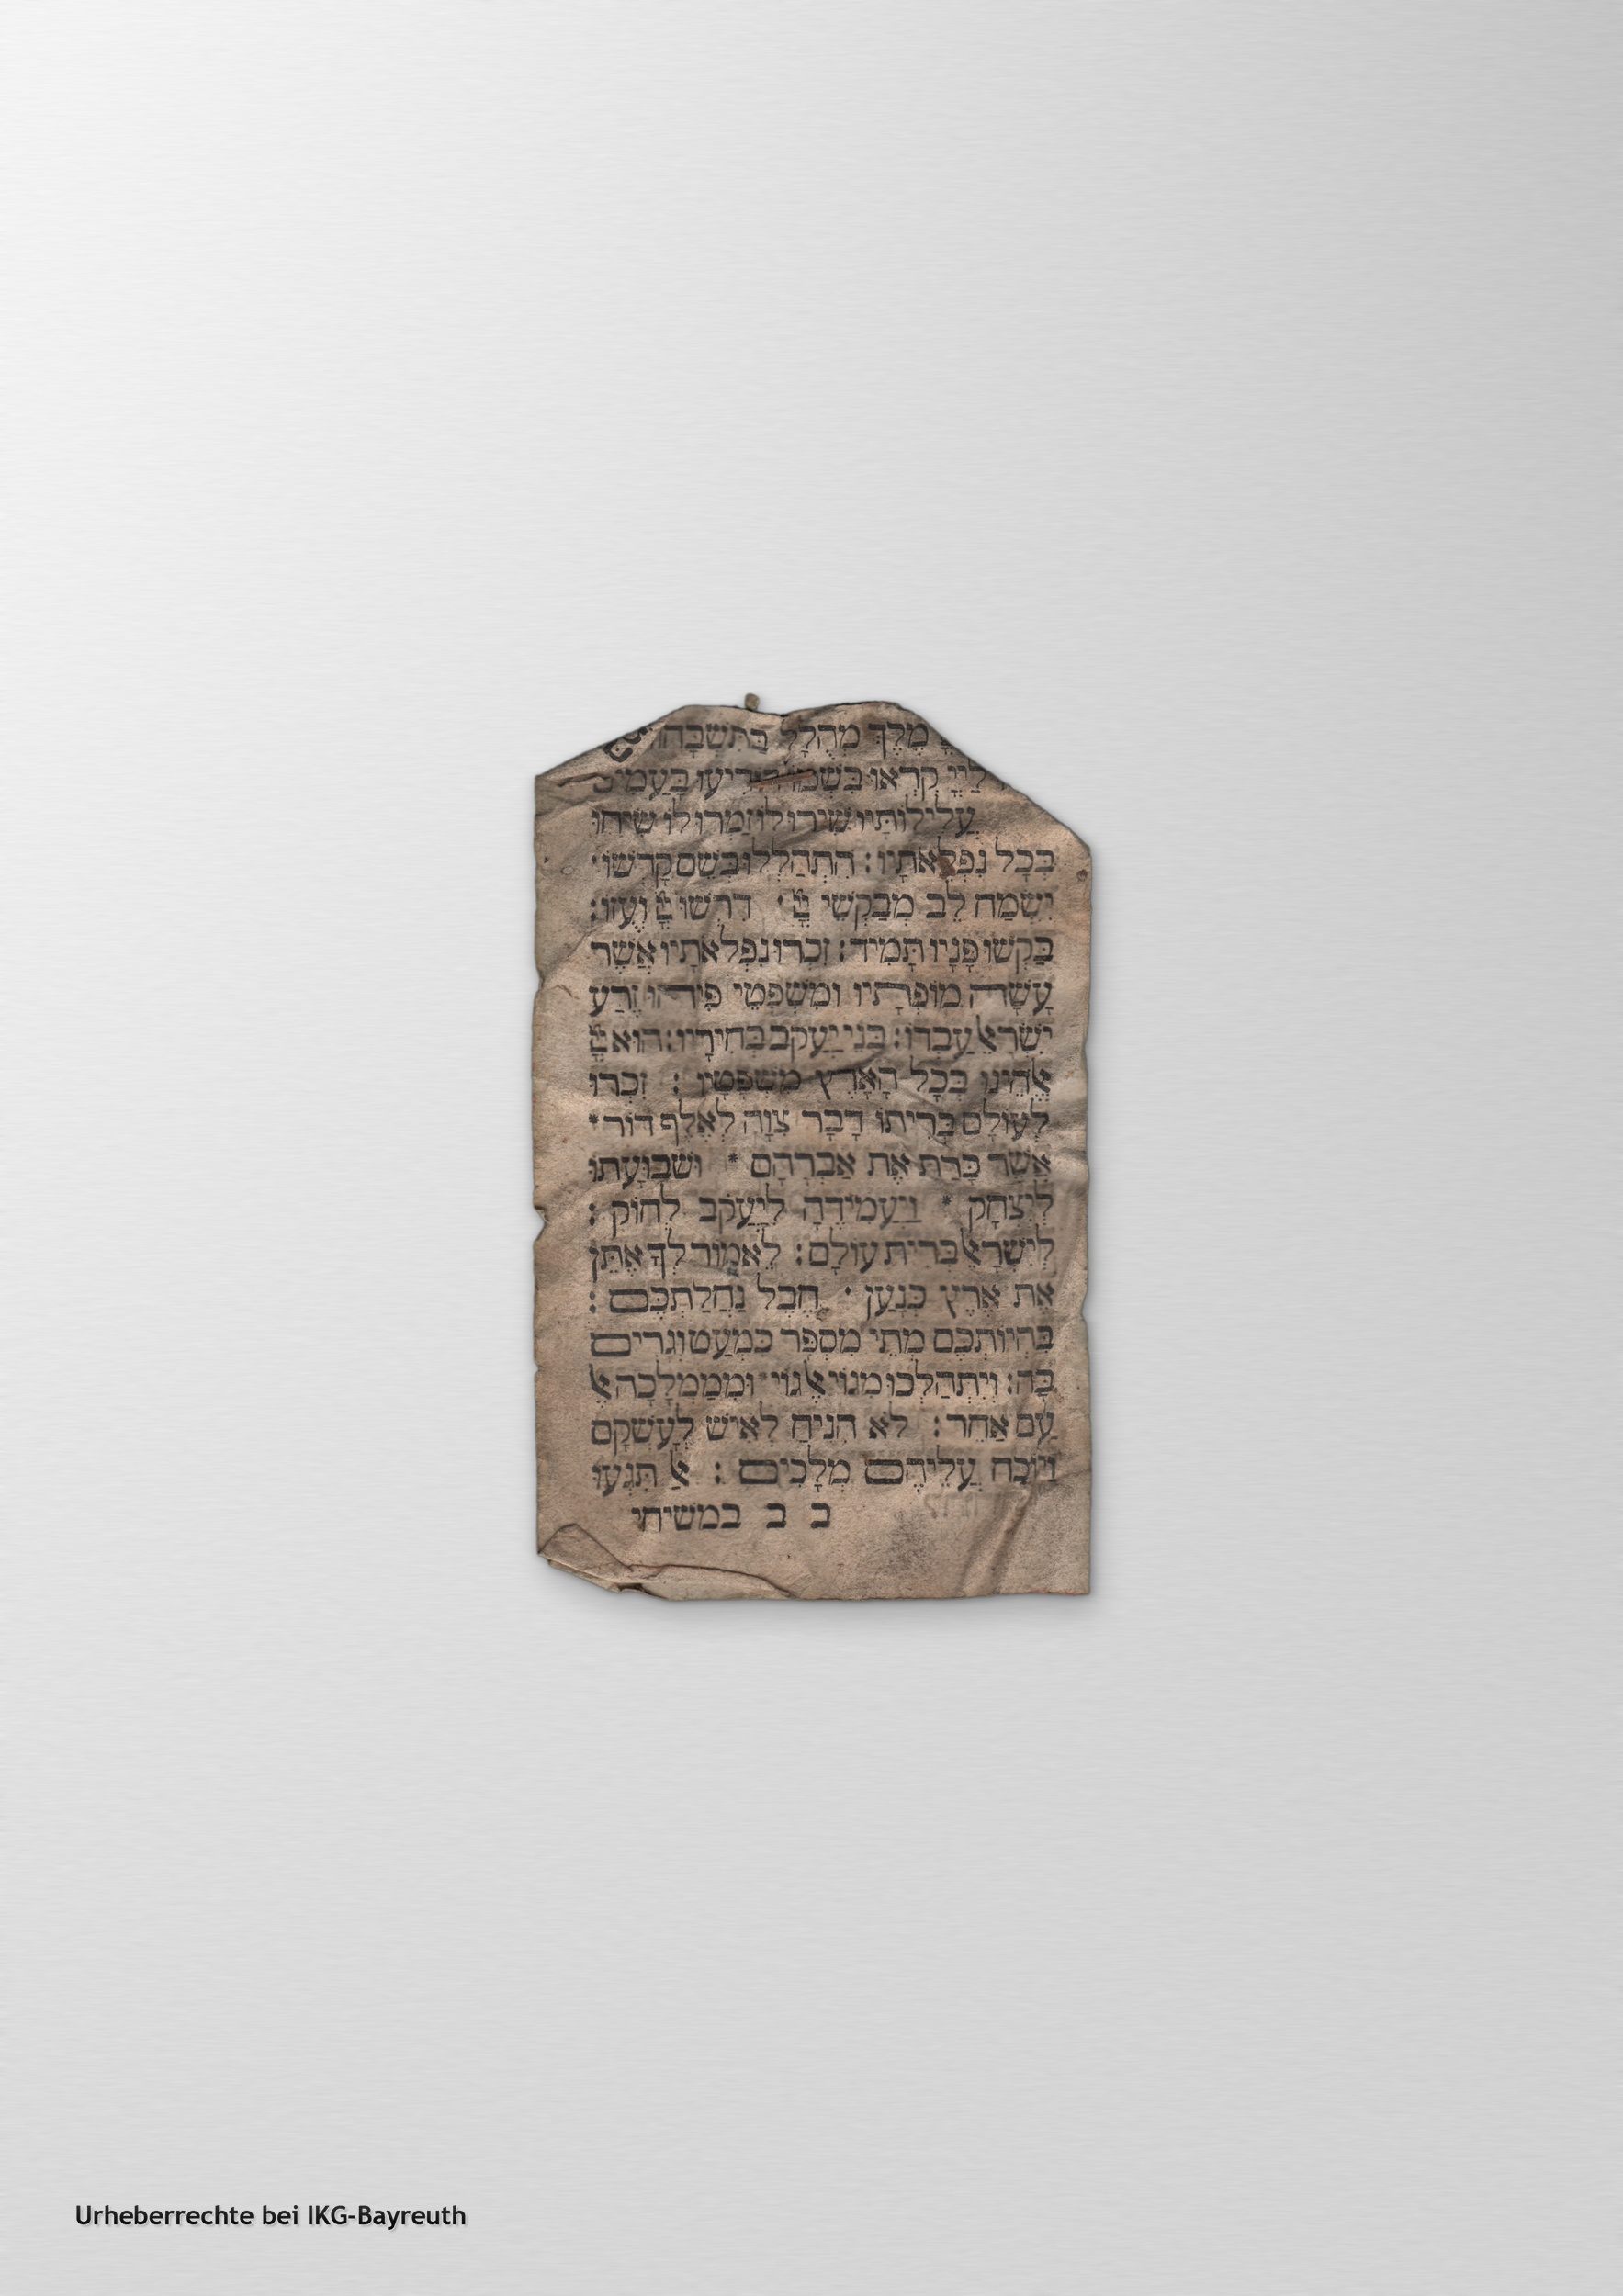 מֶלֶךְ מְהֻלָּל בַּתִּשְׁבָּחו
לַייָ קִרְאוּ בִשְׁמוֹ הוֹדִיעוּ בָעַמִים
עֲלִילוֹתָיו שִׁירוּ לוֹ זַמְּרוּ לוֹ שִׂיחוּ
בְּכָל נִפְלְאֹתָיו: הִתְהַלְלוּ בְּשֵׁם קָדְשׁוֹ׳
יִשְׂמַח לֵב מְבַקְשֵׁי יְיָ ׳ דִּרְשׁוּ יְיָ וְעֻזּוֹ:
בַּקְּשׁוּ פָנָיו תָּמִיד: זִכְרוּ נִפְלְאֹתָיו אֲשֶׁר
עָשָׂה מוֹפְתָיו וּמִשְׁפְּטֵי פִיהוּ: זֶרַע
יִשְׂרָאֵל עַבְדּוֹ: בְּנֵי יַעֲקֹב בְּחִירָיו: הוּא יְיָ
אֱלֹהֵינוּ בְּכָל הָאָרֶץ מִשְׁפָּטָיו : זִכְרוּ
לְעוֹלָם בְּרִיתוֹ דָּבָר צִוָּה לְאֶלֶף דּוֹר*
אֲשֶׁר כָּרַת אֶת אַבְרָהָם * וּשְׁבוּעָתוֹ
לְיִצְחָק * וַיַּעֲמִידֶהָ לְיַעֲקֹב לְחוֹק :
לְיִשְׂרָאֵל בְּרִית עוֹלָם: לֵאמוֹר לְךָ אֶתֵּן
אֶת אֶרֶץ כְּנָעַן ׳ חֶבֶל נַחֲלַתְכֶם :
בִּהְיוֹתְכֶם מְתֵי מִסְפָּר כִּמְעַט וְגָרִים
בָּהּ: וַיִּתְהַלְּכוּ מִגּוֹי אֶל גּוֹי וּמִמַּמְלָכָה אֶל
עַם אַחֵר: לֹא הִנִּיחַ לְאִישׁ לְעָשְׁקָם
וַיּוֹכַח עֲלֵיהֶם מְלָכִים : אַל תִּגְּעוּ
ב ב במשיחי
Urheberrechte bei IKG-Bayreuth